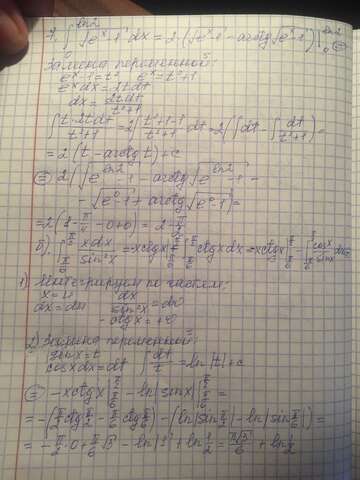 ∫₀^{ln2} √(eˣ-1) dx = 2(√(eˣ-1) - arctg√(eˣ-1)) |₀^{ln2} ⊜
Замена переменной:
eˣ-1=t² eˣ=t²+1
eˣdx=2tdt
dx = 2tdt/(t²+1)
∫ t·2tdt/(t²+1) = 2∫ (t²+1-1)/(t²+1) dt = 2(∫dt - ∫ dt/(t²+1)) =
=2(t-arctg t)+c
⊜ 2(√(e^{ln2}-1) - arctg√(e^{ln2}-1) -
- √(e⁰-1) + arctg√(e⁰-1)) =
=2(1-π/4-0+0) = 2-π/2
∫_{π/6}^{π/2} xdx/sin²x = -xctgx |_{π/6}^{π/2} ∫_{π/6}^{π/2} ctgxdx = -xctgx |_{π/6}^{π/2} - ∫_{π/6}^{π/2} cosx/sinx dx ⊜
1) Интегрируем по частям:
x=u dx/sin²x=dv
dx=du -ctgx=v
2) Замена переменной:
sinx=t
cosxdx=dt ∫ dt/t = ln|t|+c
⊜ -xctgx |_{π/6}^{π/2} - ln|sinx| |_{π/6}^{π/2} =
= -(π/2 ctg π/2 - π/6 ctg π/6) - (ln|sin π/2| - ln|sin π/6|) =
= -π/2·0 + π/6 √3 - ln|1| + ln 1/2 = π√3/6 + ln 1/2